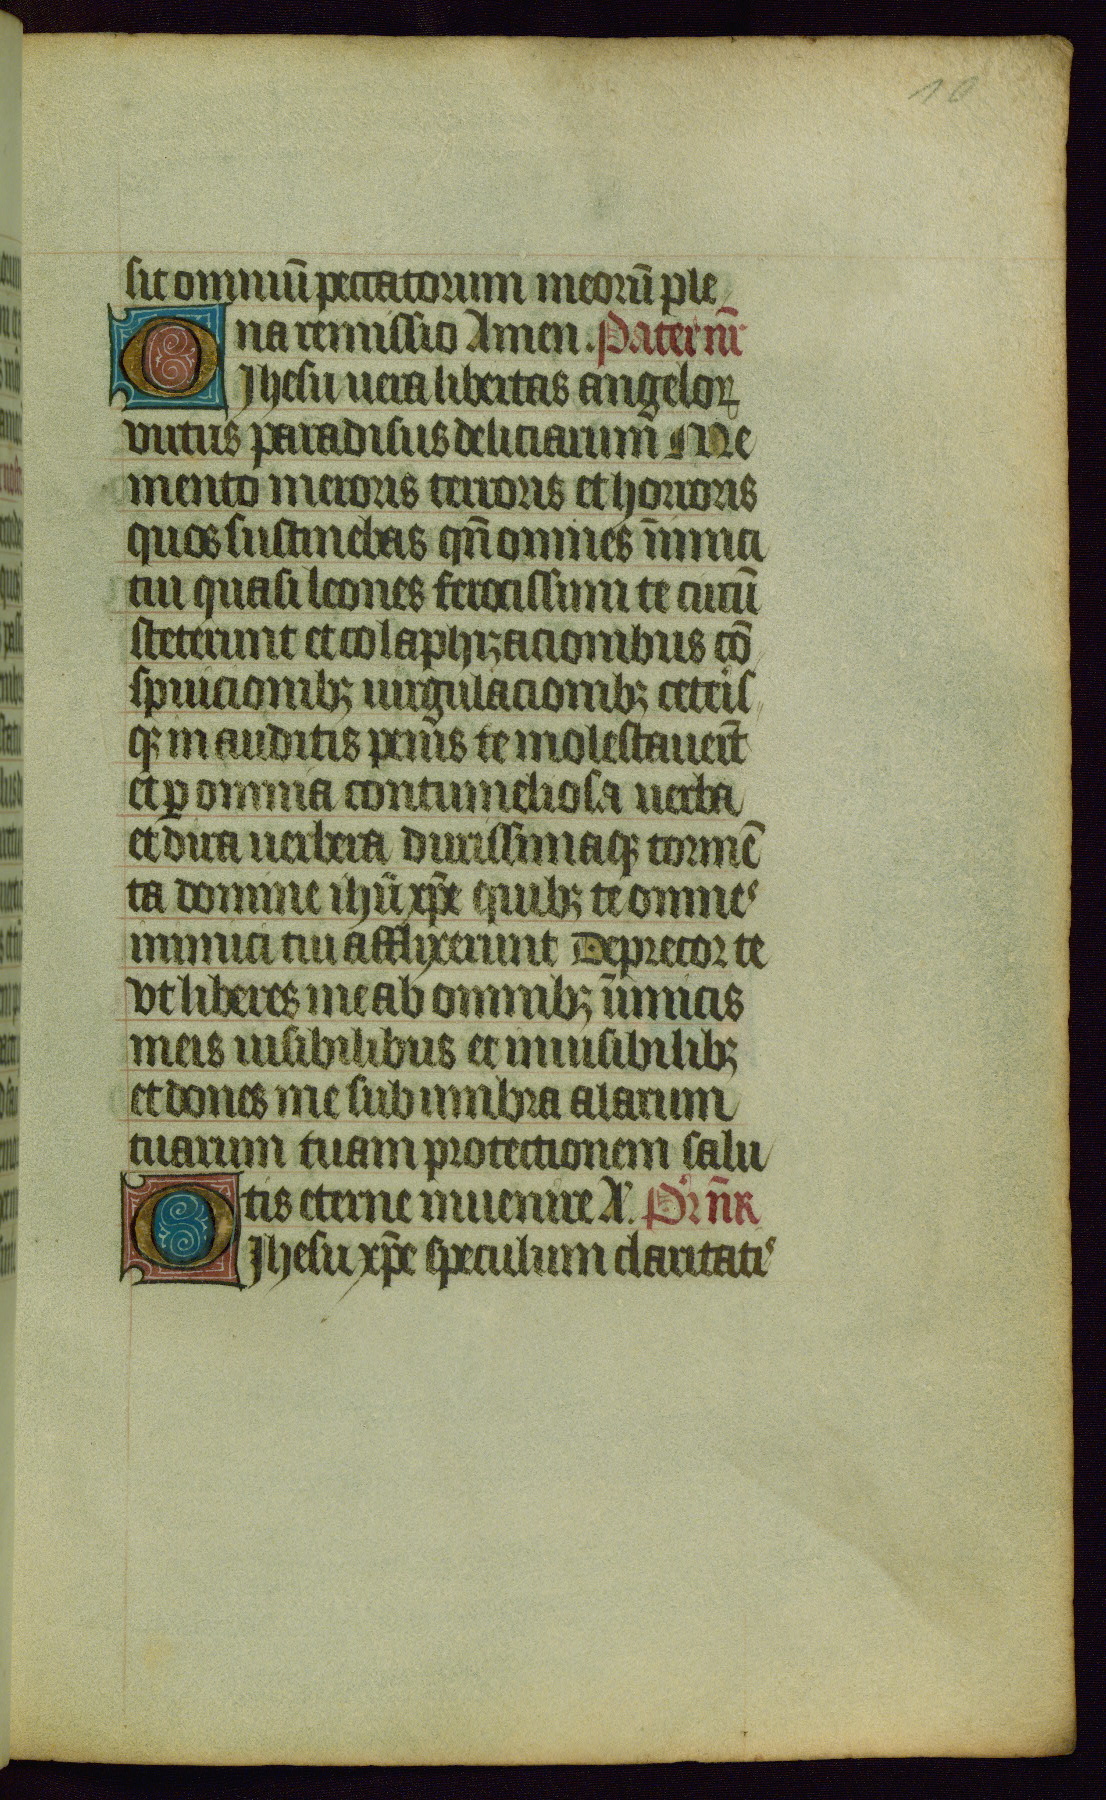 10
sit omniū peccatorum meorū ple
na remissio Amen. Pater nr̄
O Jhesu uera libertas angeloꝝ
virtus paradisus deliciarum Me
mento meroris terroris et horroris
quos sustinebas qn̄ omnes īimici
tui quasi leones ferocissimi te circū
steterunt et colaphizacionibus cō
spuicionibꝫ uirgulacionibꝫ ceteris
qꝫ in auditis penis te molestauerūt
et ꝑ omnia contumeliosa uerba
et dira uerbera durissimaqꝫ tormē
ta domine ihū xp̄e quibꝫ te omnes
inimici tui afflixerunt Deprecor te
vt liberes me ab omnibꝫ īnimicis
meis uisibilibus et inuisibilibꝫ
et dones me sub umbra alarum
tuarum tuam protectionem salu
tis eterne inuenire A. Pr̄ nr̄
O Jhesu xp̄e speculum claritatis